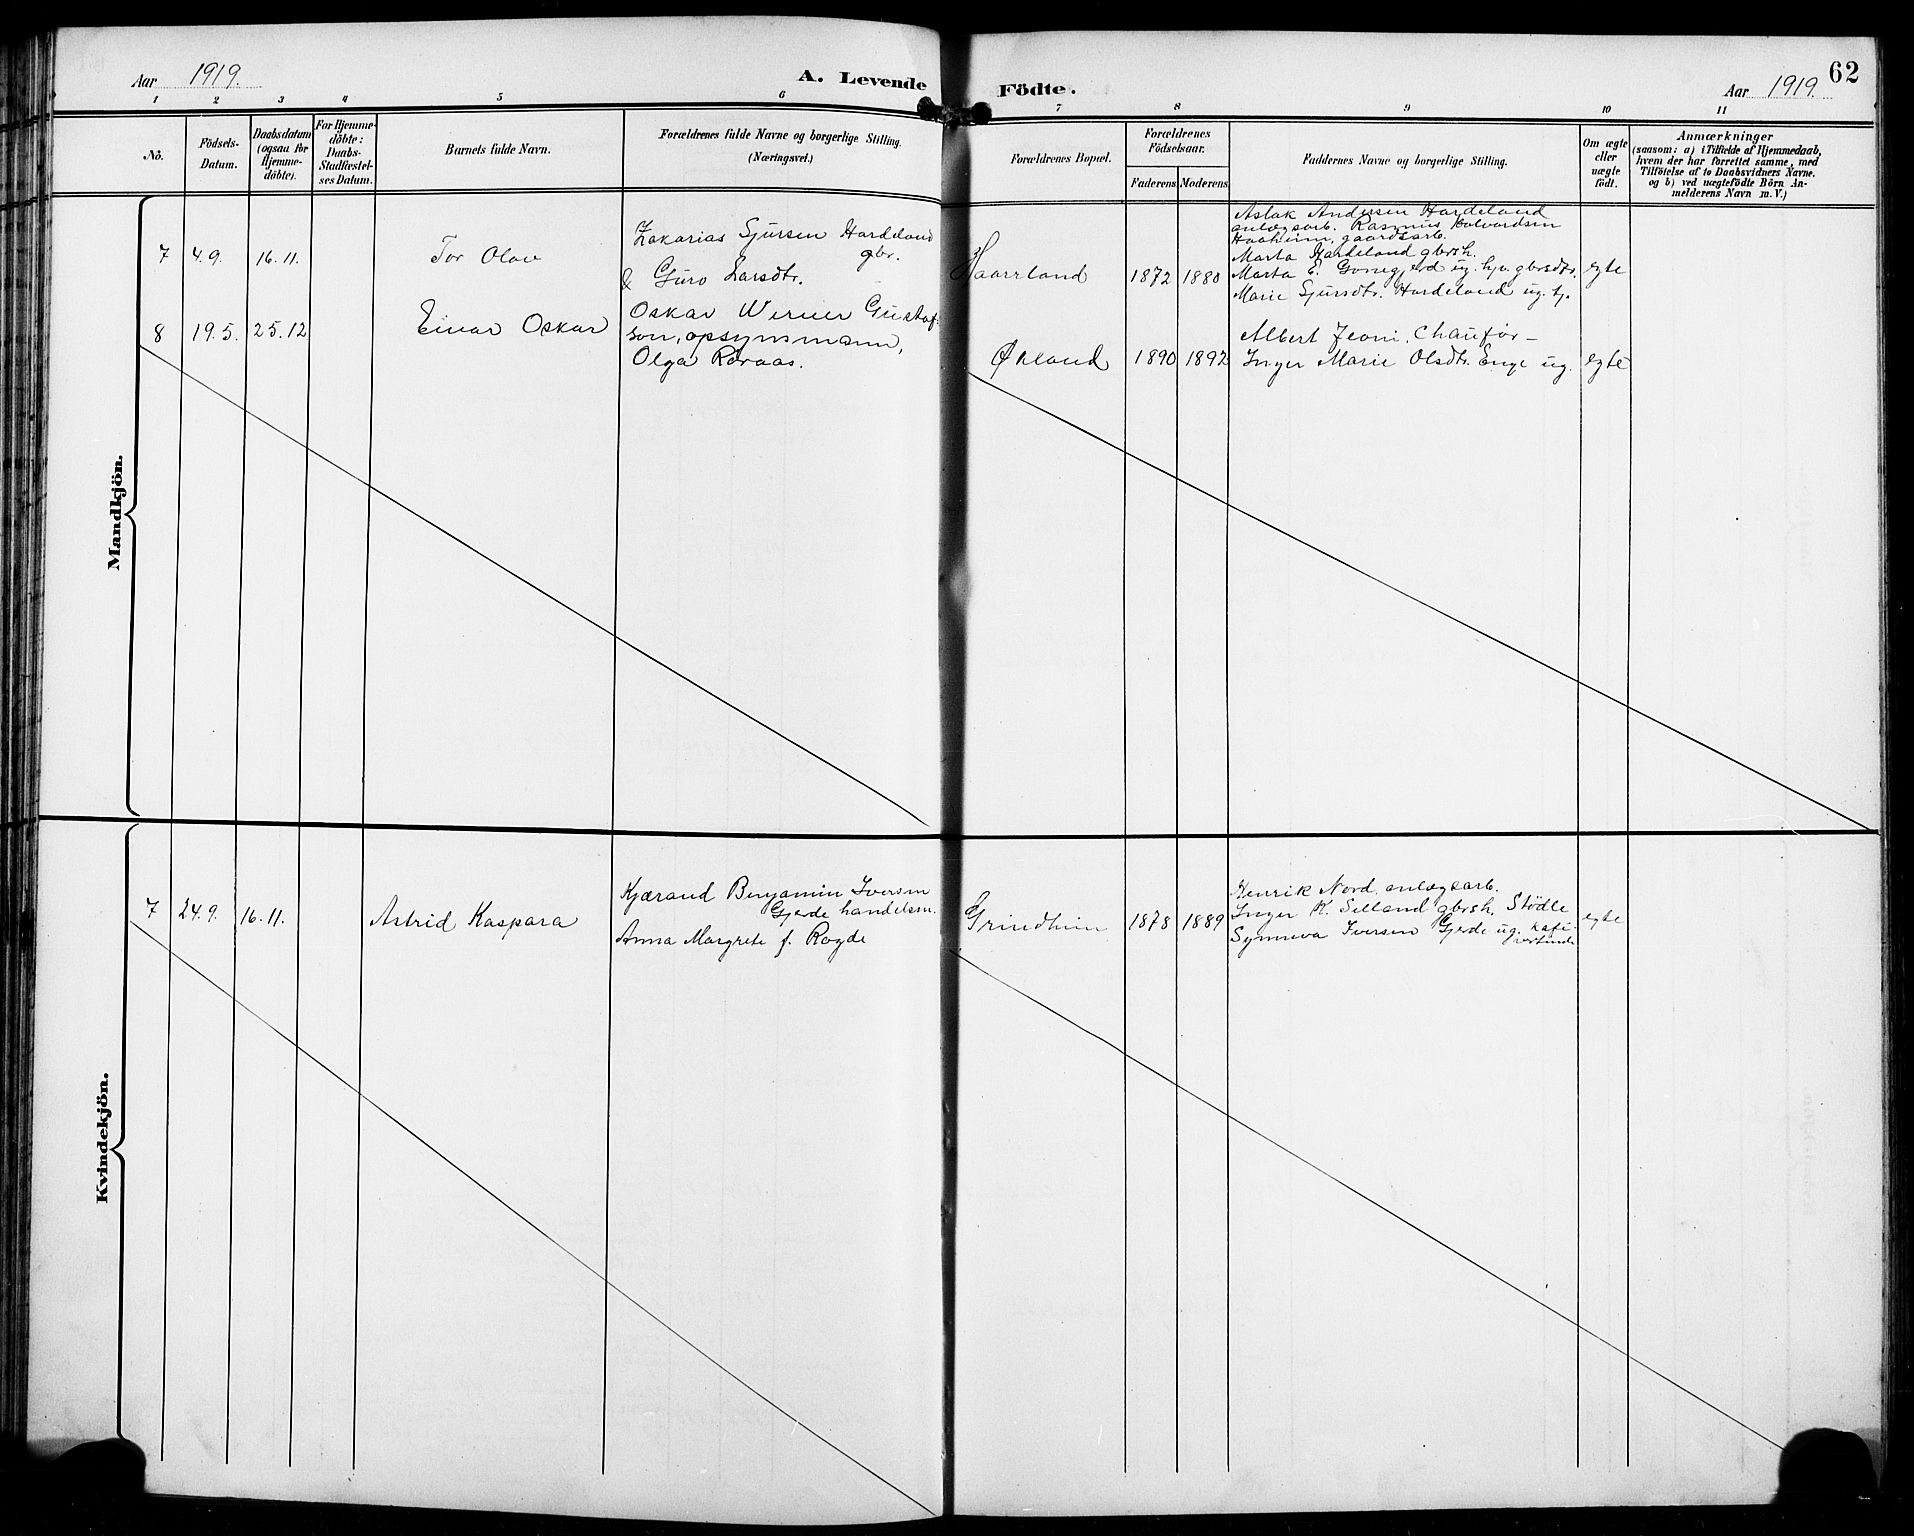 Aar 1919.
A. Levende
Födte.
Aar 1919.
62
1 2 3 4 5 6 7 8 9 10 11
No.
Födsels-
Datum.
Daabsdatum
(ogsaa for
Hjemme-
döbte).
For Hjemme-
döbte:
Daabs-
Stadfæstel-
ses Datum.
Barnets fulde Navn.
Forældrenes fulde Navne og borgerlige Stilling.
(Næringsvei.)
Forældrenes Bopæl.
Forældrenes
Födselsaar.
Faderens
Moderens
Faddernes Navne og borgerlige Stilling.
Om ægte
eller
uægte
födt.
Anmærkninger
(saasom: a) i Tilfælde af Hjemmedaab,
hvem der har forrettet samme, med
Tilföielse af to Daabsvidners Navne.
og b) ved uægtefödte Börn An-
melderens Navn m. V.)
Mandkjön.
7 4.9. 16.11.
Tor Olav
Zakarias Sjursen Hardeland
gbr.
& Guro Larsdtr.
Haarrland
1872 1880
Aslak Andersen Hardeland
anlægsarb. Rasmus Halvardsen
Haaheim, gaardsarb.
Marta Hardeland gbrsh.
Marta E. ug. hp. gbrsdtr.
Marie Sjursdtr. Hardeland ug. tj.
egte
8 19.5. 25.12
Einar Oskar
Oskar Werner Gustaf-
son, opsynsmann,
Olga Røraas.
Økland
1890 1892
Albert Jeoni, Chaufør -
Inger Marie Olsdtr. Enge ug.
egte
Kvindekjön.
7 24.9. 16.11.
Astrid Kaspara
Kjærand Benjamin Iversen
Gjerde handelsm.
Anna Margrete f. Rogde
Grindheim
1878 1889
Henrik Nord, anlægsarb.
Inger K. Selland gbrsh. Stødle
Synneva Iversen Gjerde ug. kafe-
vertinde
egte